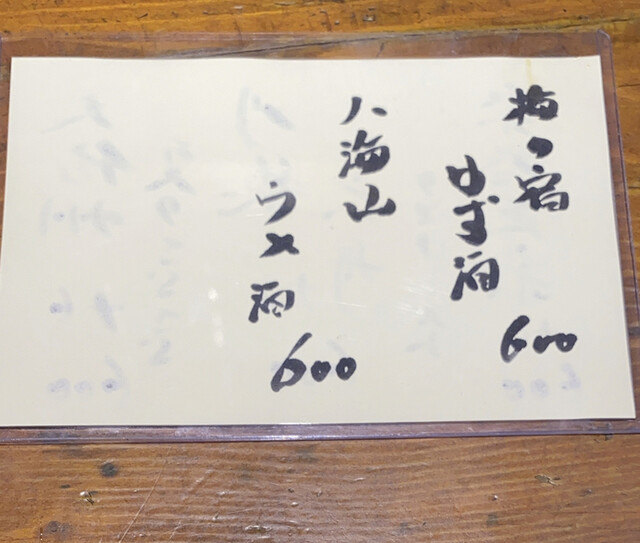 梅の宿
ゆず酒
600
八海山
ウメ酒
600